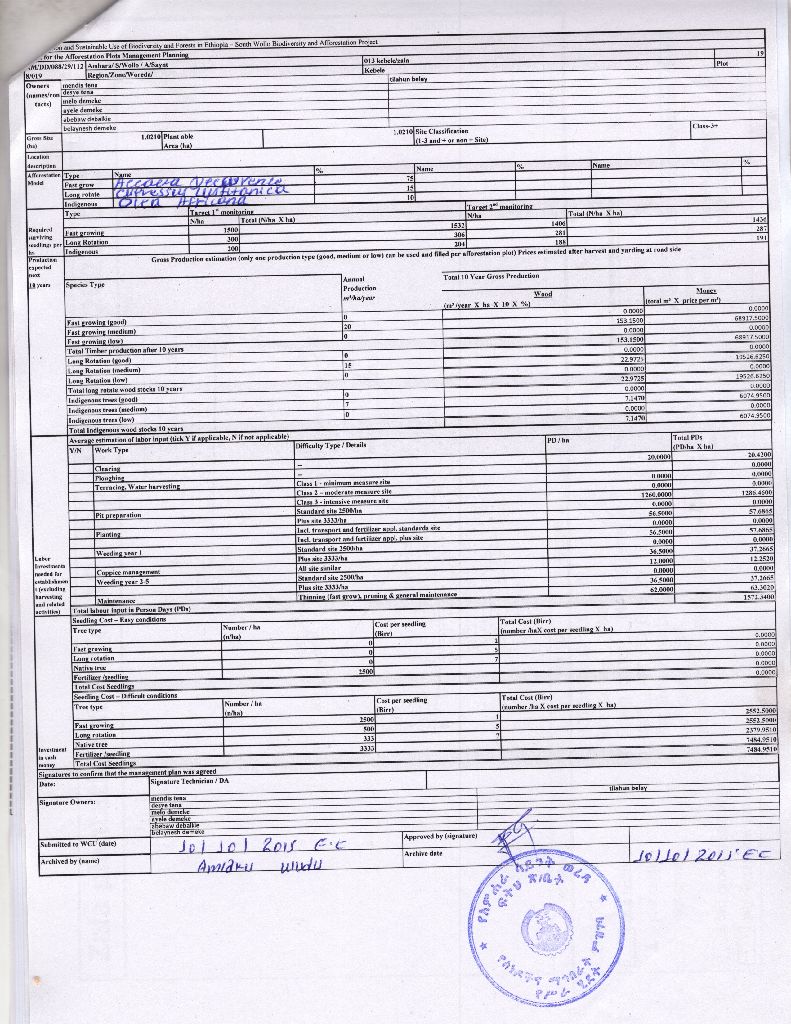 on and Sustainable Use of Biodiversity and Forests in Ethiopia – South Wollo Biodiversity and Afforestation Project
for the Afforestation Plots Management Planning
AM/DD/088/29/112 Amhara/ S/Wollo / A/Saynt 013 kebele/zein 19
8/019 Region/Zone/Woreda/ Kebele Plot
Owners (names/contacts) mendis tena tilahun belay
desye tena
melo demeke
ayele demeke
abebaw debalkie
belaynesh demeke
Gross Size (ha) 1.0210 Plant able Area (ha) 1.0210 Site Classification (1-3 and + or non = Site) Class-3+
Location description
Afforestation Model Type Name % Name % Name %
Fast grow Accacia Decurrence 75
Long rotate Cupressus Lusitanica 15
Indigenous Olea Africana 10
Type Target 1st monitoring Target 2nd monitoring
N/ha Total (N/ha X ha) N/ha Total (N/ha X ha)
Required surviving seedlings per ha
Fast growing 1500 1532 1406 1436
Long Rotation 300 306 281 287
Indigenous 200 204 188 191
Production expected next 10 years
Gross Production estimation (only one production type (good, medium or low) can be used and filled per afforestation plot) Prices estimated after harvest and yarding at road side
Species Type Annual Production m³/ha/year Total 10 Year Gross Production
Wood (m³/year X ha X 10 X %) Money (total m³ X price per m³)
Fast growing (good) 0 0.0000 0.0000
Fast growing (medium) 20 153.1500 68917.5000
Fast growing (low) 0 0.0000 0.0000
Total Timber production after 10 years 153.1500 68917.5000
Long Rotation (good) 0 0.0000 0.0000
Long Rotation (medium) 15 22.9725 19526.6250
Long Rotation (low) 0 0.0000 0.0000
Total long rotate wood stocks 10 years 22.9725 19526.6250
Indigenous trees (good) 0 0.0000 0.0000
Indigenous trees (medium) 7 7.1470 6074.9500
Indigenous trees (low) 0 0.0000 0.0000
Total Indigenous wood stocks 10 years 7.1470 6074.9500
Average estimation of labor input (tick Y if applicable, N if not applicable)
Y/N Work Type Difficulty Type / Details PD / ha Total PDs (PD/ha X ha)
Clearing -- 20.0000 20.4200
Ploughing -- 0.0000
Terracing, Water harvesting Class 1 - minimum measure site 0.0000 0.0000
Class 2 - moderate measure site 0.0000 0.0000
Class 3 - intensive measure site 1260.0000 1286.4600
Pit preparation Standard site 2500/ha 0.0000 0.0000
Plus site 3333/ha 56.5000 57.6865
Planting Incl. transport and fertilizer appl. standards site 0.0000 0.0000
Incl. transport and fertilizer appl. plus site 56.5000 57.6865
Weeding year 1 Standard site 2500/ha 0.0000 0.0000
Plus site 3333/ha 36.5000 37.2665
Coppice management All site similar 12.0000 12.2520
Weeding year 2-5 Standard site 2500/ha 0.0000 0.0000
Plus site 3333/ha 36.5000 37.2665
Maintenance Thinning (fast grow), pruning & general maintenance 62.0000 63.3020
Labor Investments needed for establishment (excluding harvesting and related activities)
Total labour input in Person Days (PDs) 1572.3400
Seedling Cost – Easy conditions
Tree type Number / ha (n/ha) Cost per seedling (Birr) Total Cost (Birr) (number /haX cost per seedling X ha)
Fast growing 0 1 0.0000
Long rotation 0 5 0.0000
Native tree 0 7 0.0000
Fertilizer /seedling 2500 0.0000
Total Cost Seedlings 0.0000
Seedling Cost – Difficult conditions
Tree type Number / ha (n/ha) Cost per seedling (Birr) Total Cost (Birr) (number /ha X cost per seedling X ha)
Fast growing 2500 1 2552.5000
Long rotation 500 5 2552.5000
Native tree 333 7 2379.9510
Fertilizer /seedling 3333 7484.9510
Total Cost Seedlings 7484.9510
Investment in cash money
Signatures to confirm that the management plan was agreed
Date: Signature Technician / DA
Signature Owners: mendis tena tilahun belay
desye tena
melo demeke
ayele demeke
abebaw debalkie
belaynesh demeke
Submitted to WCU (date) 10/10/2015 E.C Approved by (signature)
Archived by (name) Amlaku Wudu Archive date 10/10/2015 EC